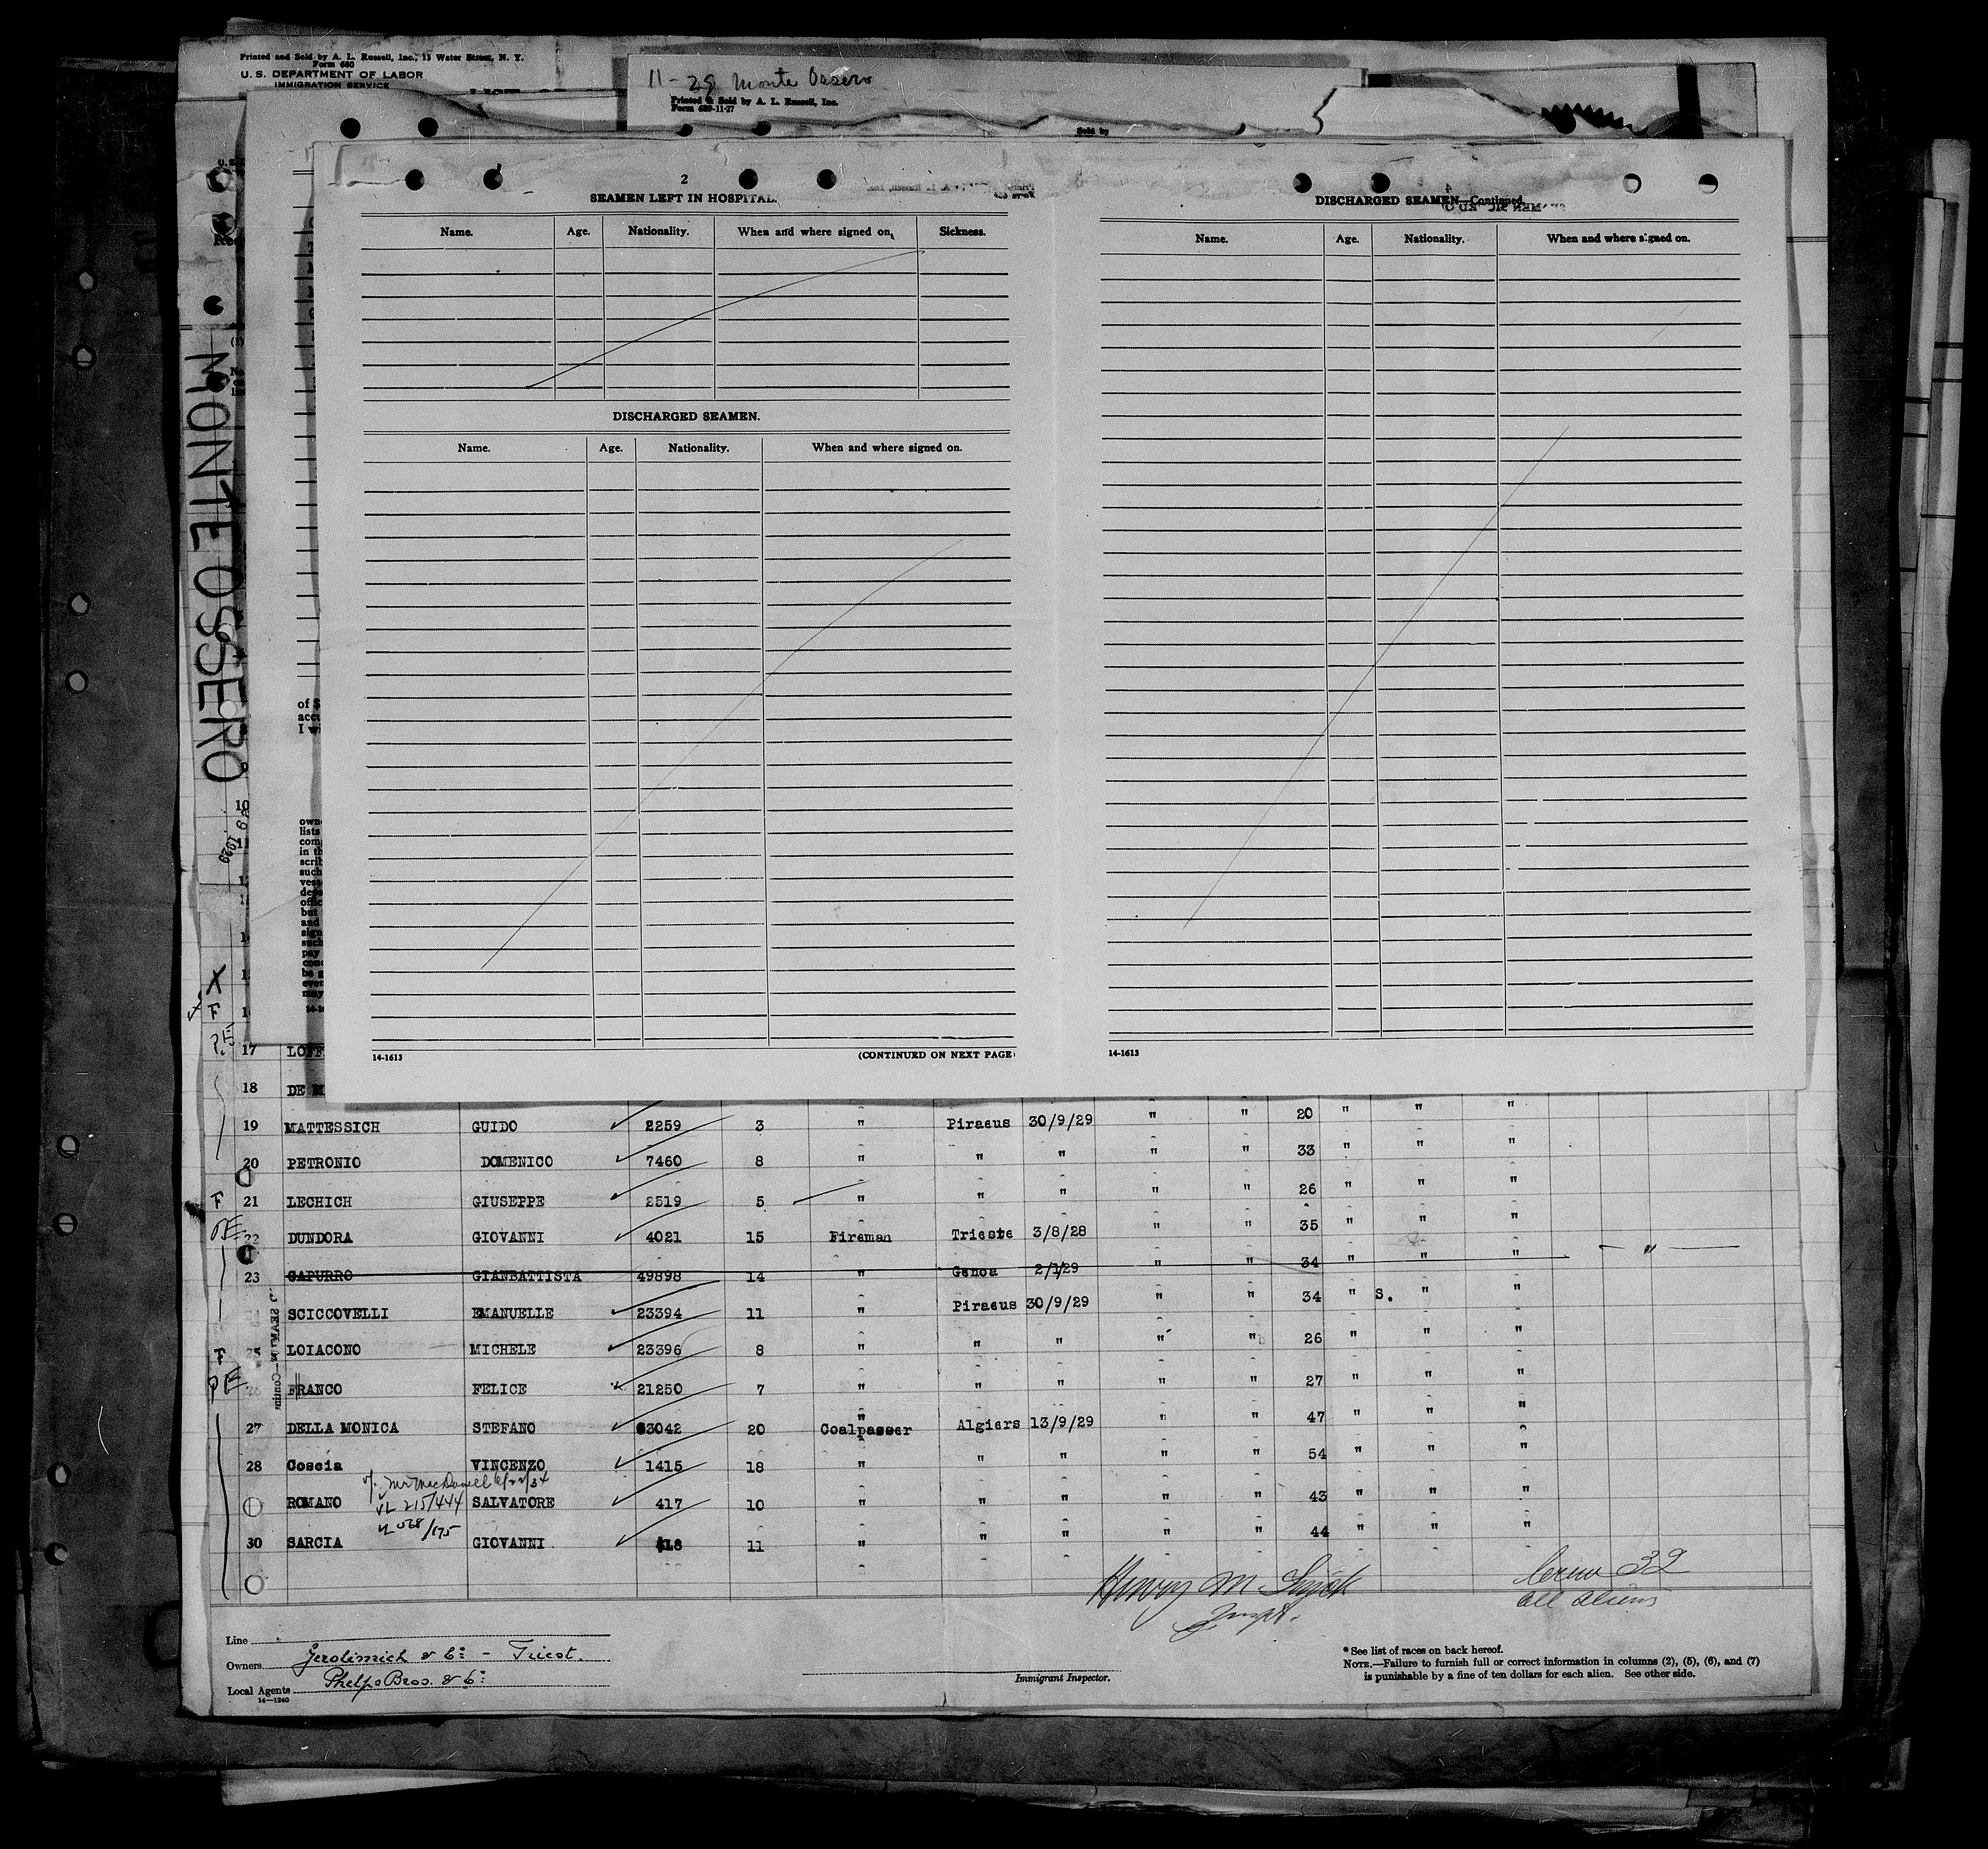 Printed and Sold by A. L. Russell, Inc., 13 Water Street, N. Y.
Form 680
U. S. DEPARTMENT OF LABOR
IMMIGRATION SERVICE
11-29 Monte Ossero
Printed & Sold by A. L. Russell, Inc.
Form 689-11-27
Sold by
MONTE OSSERO
1929
2
SEAMEN LEFT IN HOSPITAL.
Name. Age. Nationality. When and where signed on. Sickness.
DISCHARGED SEAMEN.
Name. Age. Nationality. When and where signed on.
14-1613 (CONTINUED ON NEXT PAGE)
4
DISCHARGED SEAMEN—Continued.
Name. Age. Nationality. When and where signed on.
14-1613
of S
acc
I wi
own
lists
com
in th
scrib
such
vess
depa
offic
but
and
sign
such
pay
conc
be s
even
may
X
F
P.E
17 LOFF
18 DE M
19 MATTESSICH GUIDO 2259 3 " Piraeus 30/9/29 " " 20 " " "
20 PETRONIO DOMENICO 7460 8 " " " " " 33 " " "
F 21 LECHICH GIUSEPPE 2519 5 " " " " " 26 " " "
PE 22 DUNDORA GIOVANNI 4021 15 Fireman Trieste 3/8/28 " " 35 " " "
23 CAPURRO GIANBATTISTA 49898 14 " Genoa 2/1/29 " " 34 " " " "
SCICCOVELLI EMANUELLE 23394 11 " Piraeus 30/9/29 " " 34 " S. " "
F 25 LOIACONO MICHELE 23396 8 " " " " " 26 " " "
PE 26 FRANCO FELICE 21250 7 " " " " " 27 " " "
27 DELLA MONICA STEFANO 63042 20 " Coalpasser Algiers 13/9/29 " " 47 " " "
28 Coscia VINCENZO 1415 18 " " " " " 54 " " "
ROMANO SALVATORE 417 10 " " " " " 43 " " "
VL 215/444
30 SARCIA GIOVANNI 418 11 " " " " " 44 " " "
Henry M.
Inspt.
Crew 32
all aliens
Line
Owners Gerolimich & Co: - Triest.
Local Agents Phelps Bros. & Co:
14—1240
Immigrant Inspector.
* See list of races on back hereof.
NOTE.—Failure to furnish full or correct information in columns (2), (5), (6), and (7)
is punishable by a fine of ten dollars for each alien. See other side.